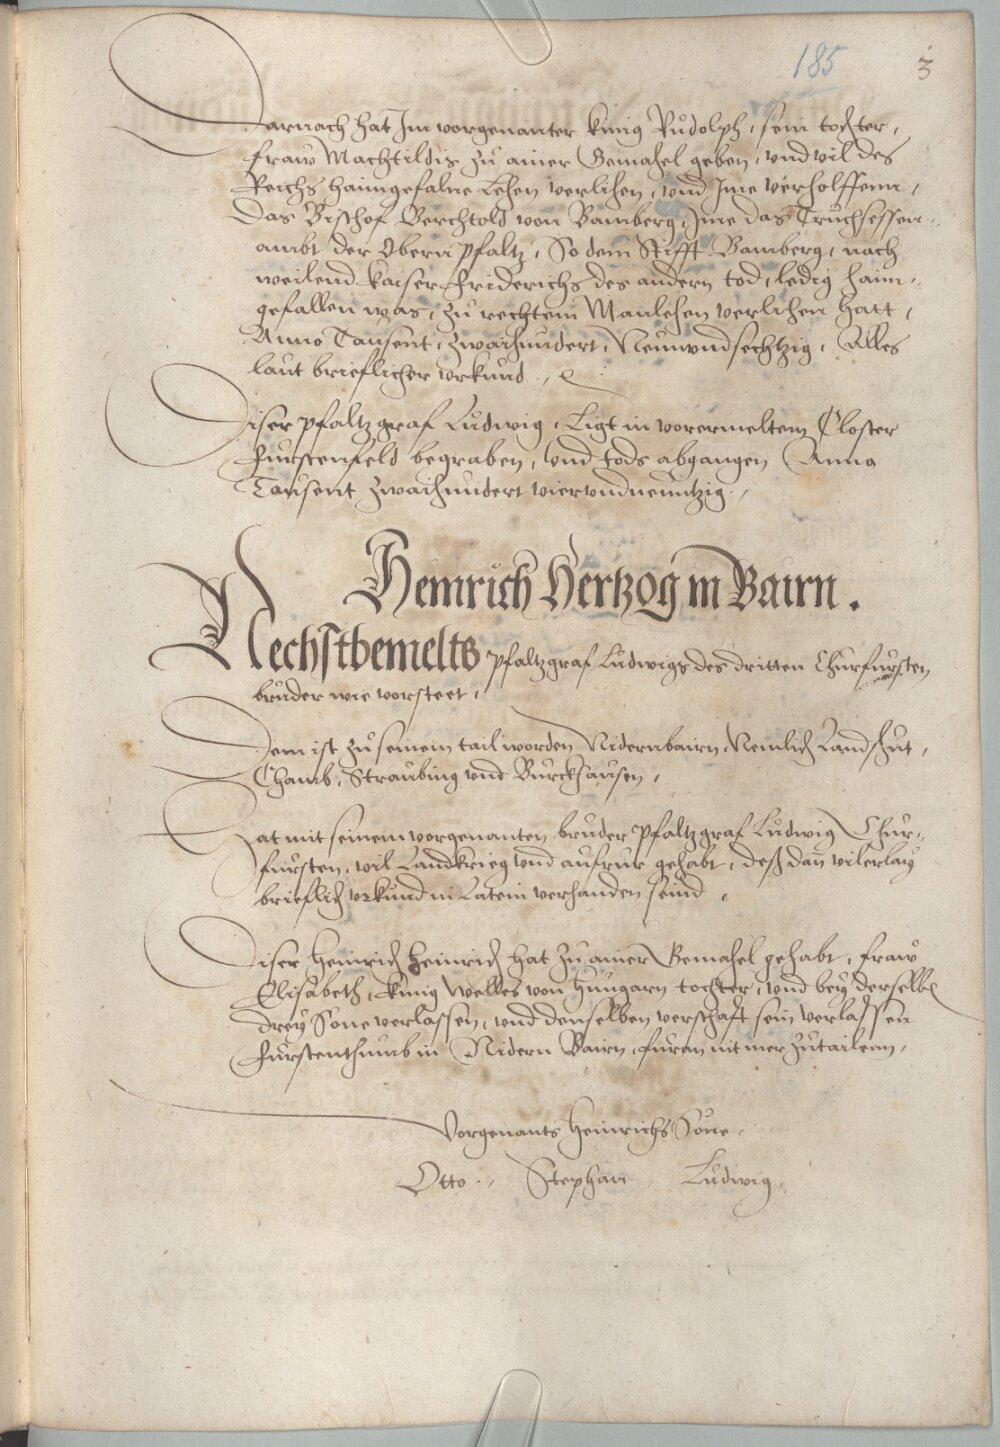 185
3
Darnach hat Im vorgenanter kunig Rudolph, sein tochter,
fraw Machtildis zu ainer Gemahel geben, vnd vil des
Reichs haimgefalne Lehen verlihen, vnd Ime verholffenn,
das Bischof Berchtold von Bamberg, Ime das Truchsessen
ambt der Obern pfaltz, So dem Stifft Bamberg, nach
weilend kaiser Friderichs des andern tod, ledig haim
gefallen was, zu rechtem Manlehen verlihen hatt,
Anno Tausent, zwaihundert, Neunvndsechtzig, Alles
laut brieflicher vrkund.
Diser pfaltzgraf Ludwig, Ligt in vorermeltem Closter
Furstenfeld begraben, vnd tods abgangen Anno
Tausent zwaihundert viervndneuntzig.
Heinrich Hertzog in Bairn.
Nechstbemelts pfaltzgraf Ludwigs des dritten Churfursten
bruder wie vorsteet,
Dem ist zu seinem tail worden Nidernbairn, Nemlich Landshut,
Chamb, Straubing vnd Burckhausen,
Hat mit seinem vorgenanten bruder Pfaltzgraf Ludwig Chur-
fursten, vil Landkrieg vnd aufrur gehabt, deß dan vilerlay
brieflich vrkund in Latein verhanden seind,
Diser Heinrich Heinrich hat zu ainer Gemahel gehabt, fraw
Elisabeth, kunig Welles von Hungarn tochter, vnd bey derselben
drey Sone verlassen, vnd denselben verschafft sein verlassen
Furstenthumb in Nidern Bairn, furan nit mer zutailenn,
Vorgenants Heinrichs Sone,
Otto, Stephan, Ludwig,